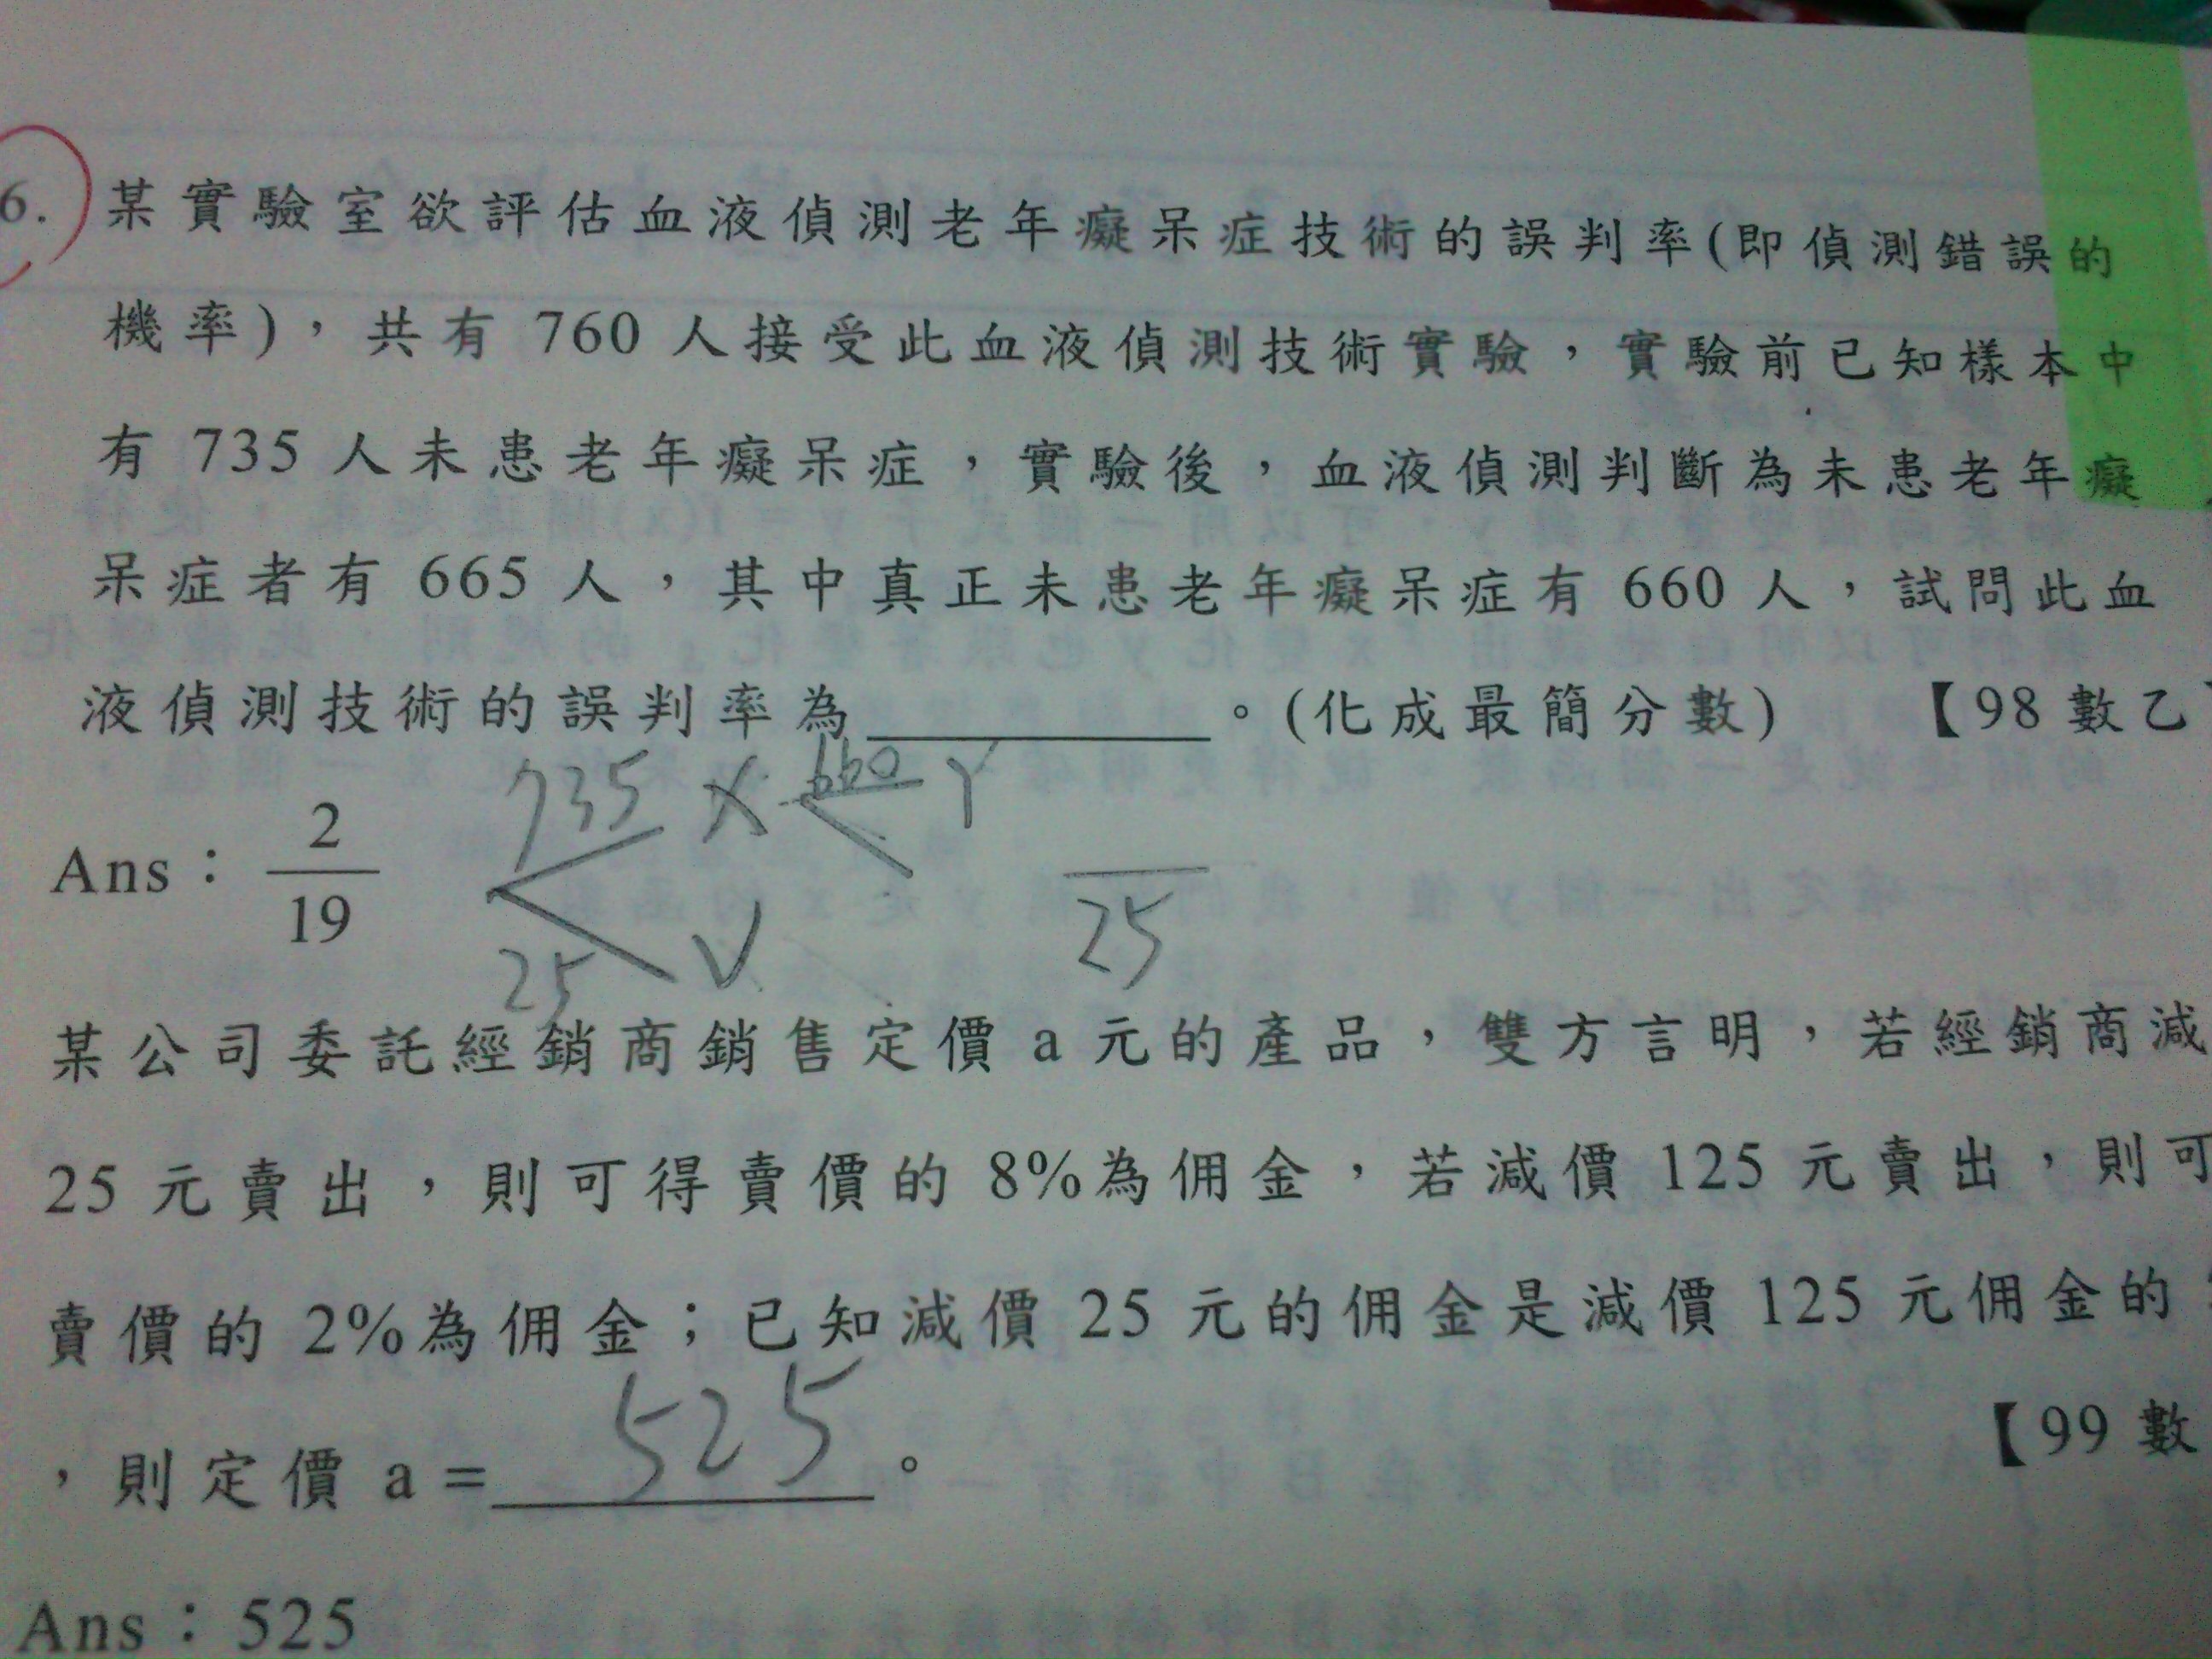 6. 某實驗室欲評估血液偵測老年癡呆症技術的誤判率(即偵測錯誤的
機率)，共有 760 人接受此血液偵測技術實驗，實驗前已知樣本中
有 735 人未患老年癡呆症，實驗後，血液偵測判斷為未患老年癡
呆症者有 665 人，其中真正未患老年癡呆症有 660 人，試問此血
液偵測技術的誤判率為________。(化成最簡分數) 【98 數乙
735 X 660 Y
Ans：2/19
25 V 25
某公司委託經銷商銷售定價 a 元的產品，雙方言明，若經銷商減
25 元賣出，則可得賣價的 8%為佣金，若減價 125 元賣出，則可
賣價的 2%為佣金；已知減價 25 元的佣金是減價 125 元佣金的
，則定價 a = 525。 【99 數
Ans：525